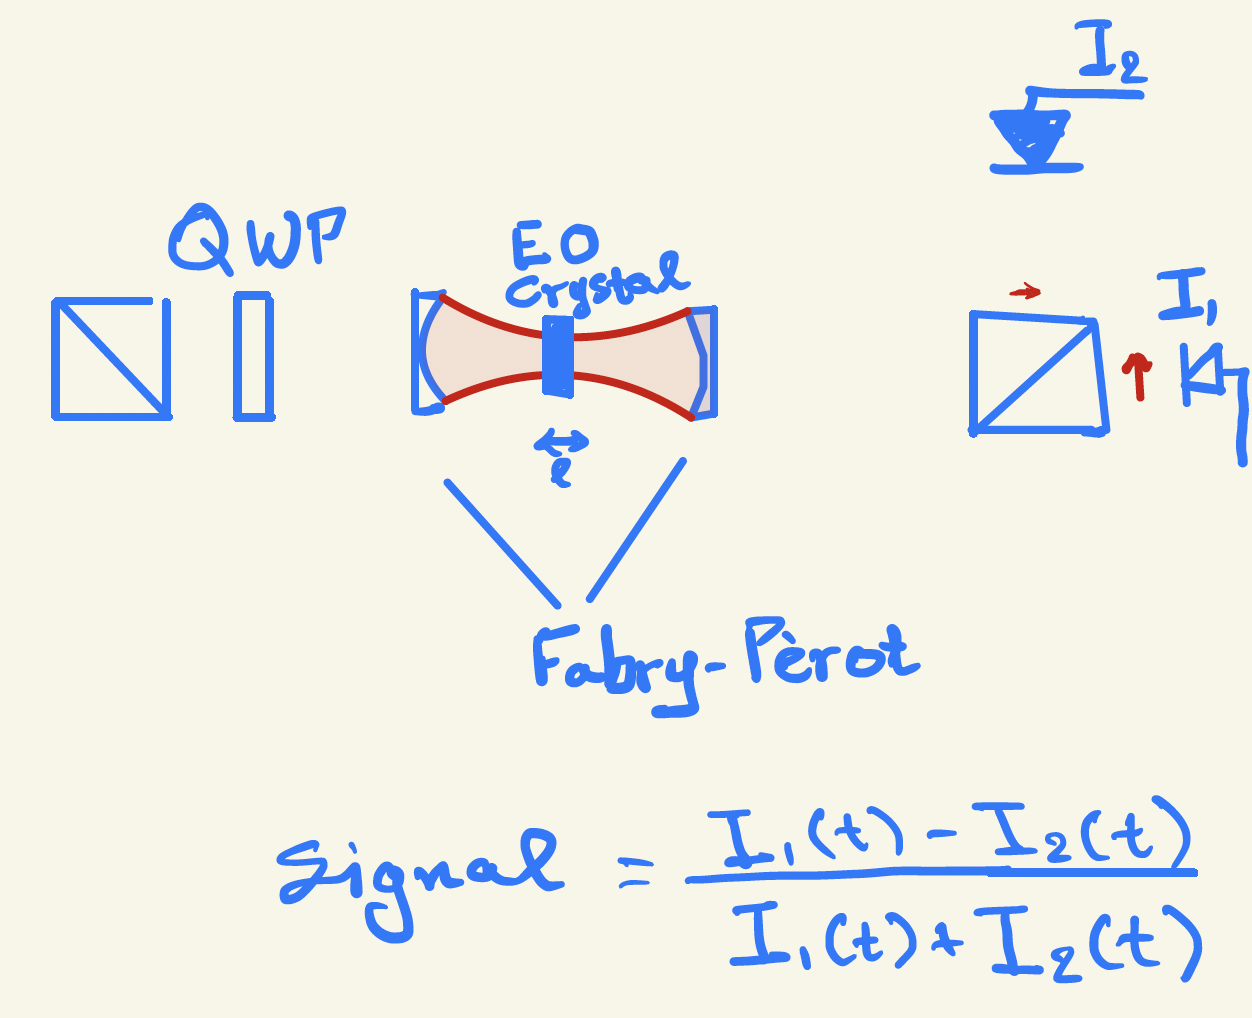 I₂
QWP
EO
Crystal
I₁
ℓ
Fabry-Pèrot
Signal = (I₁(t) - I₂(t)) / (I₁(t) + I₂(t))